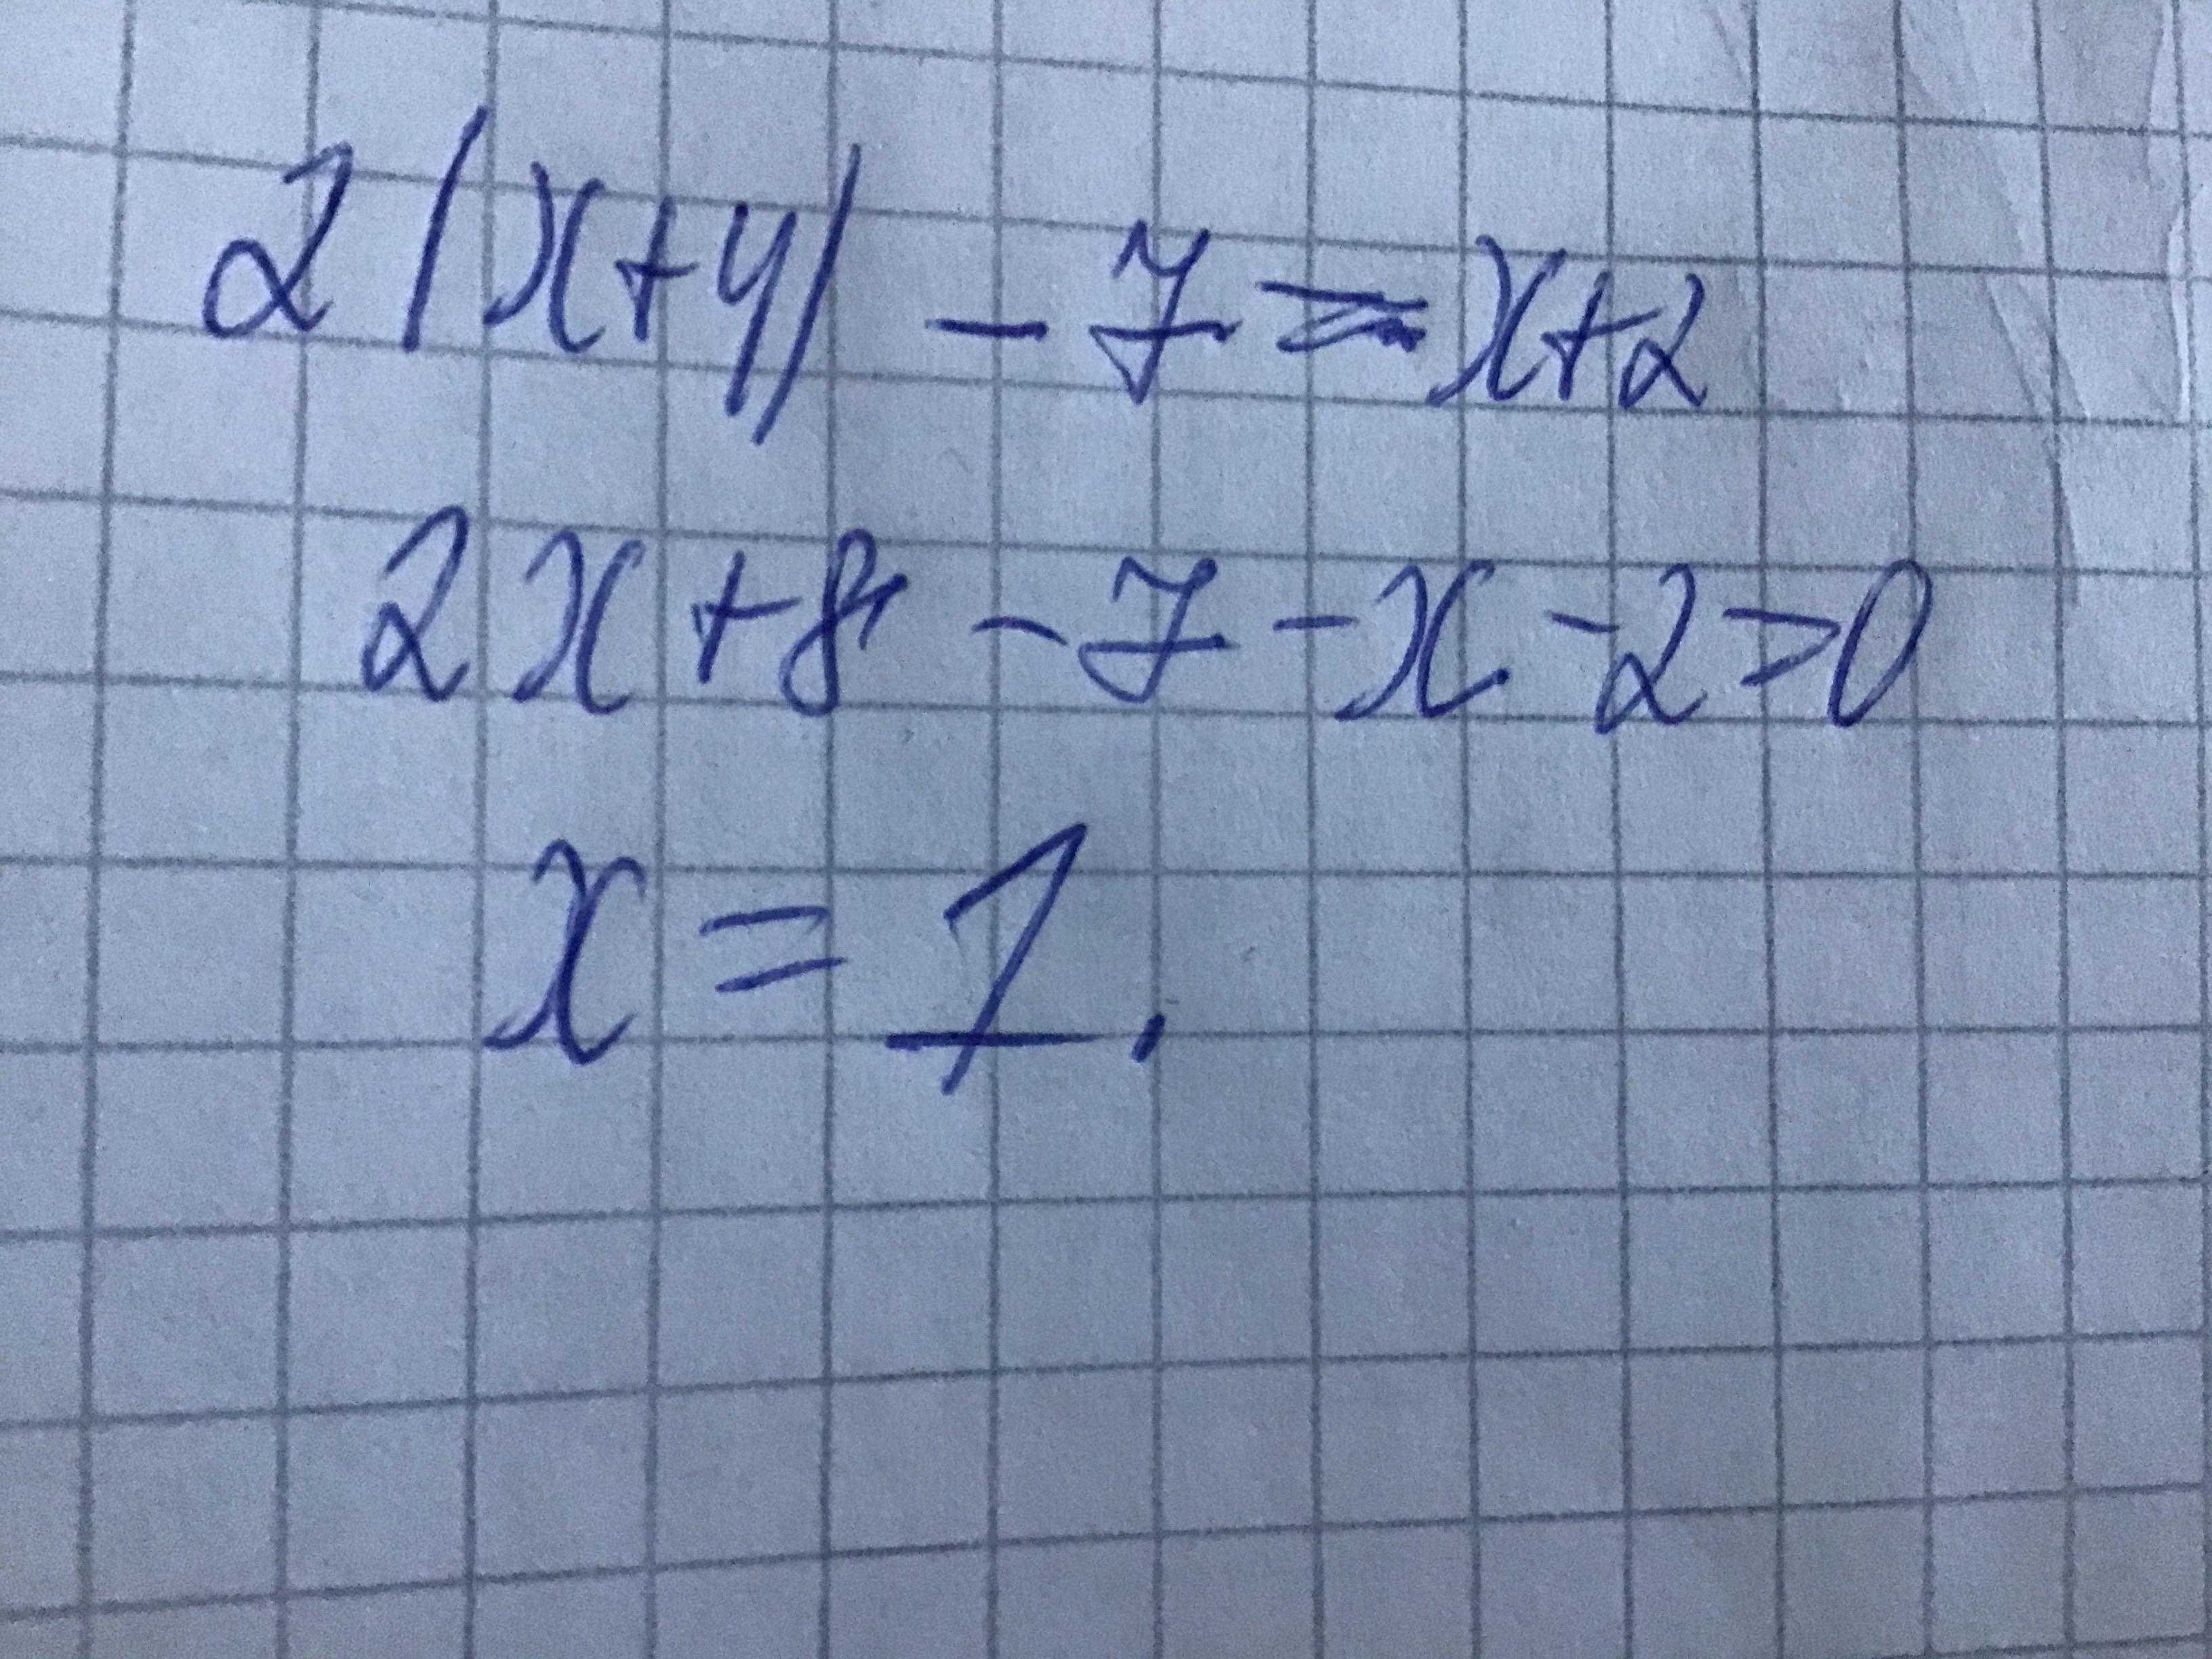 2(x+4) - 7 = x+2
2x + 8 - 7 - x - 2 = 0
x = 1.